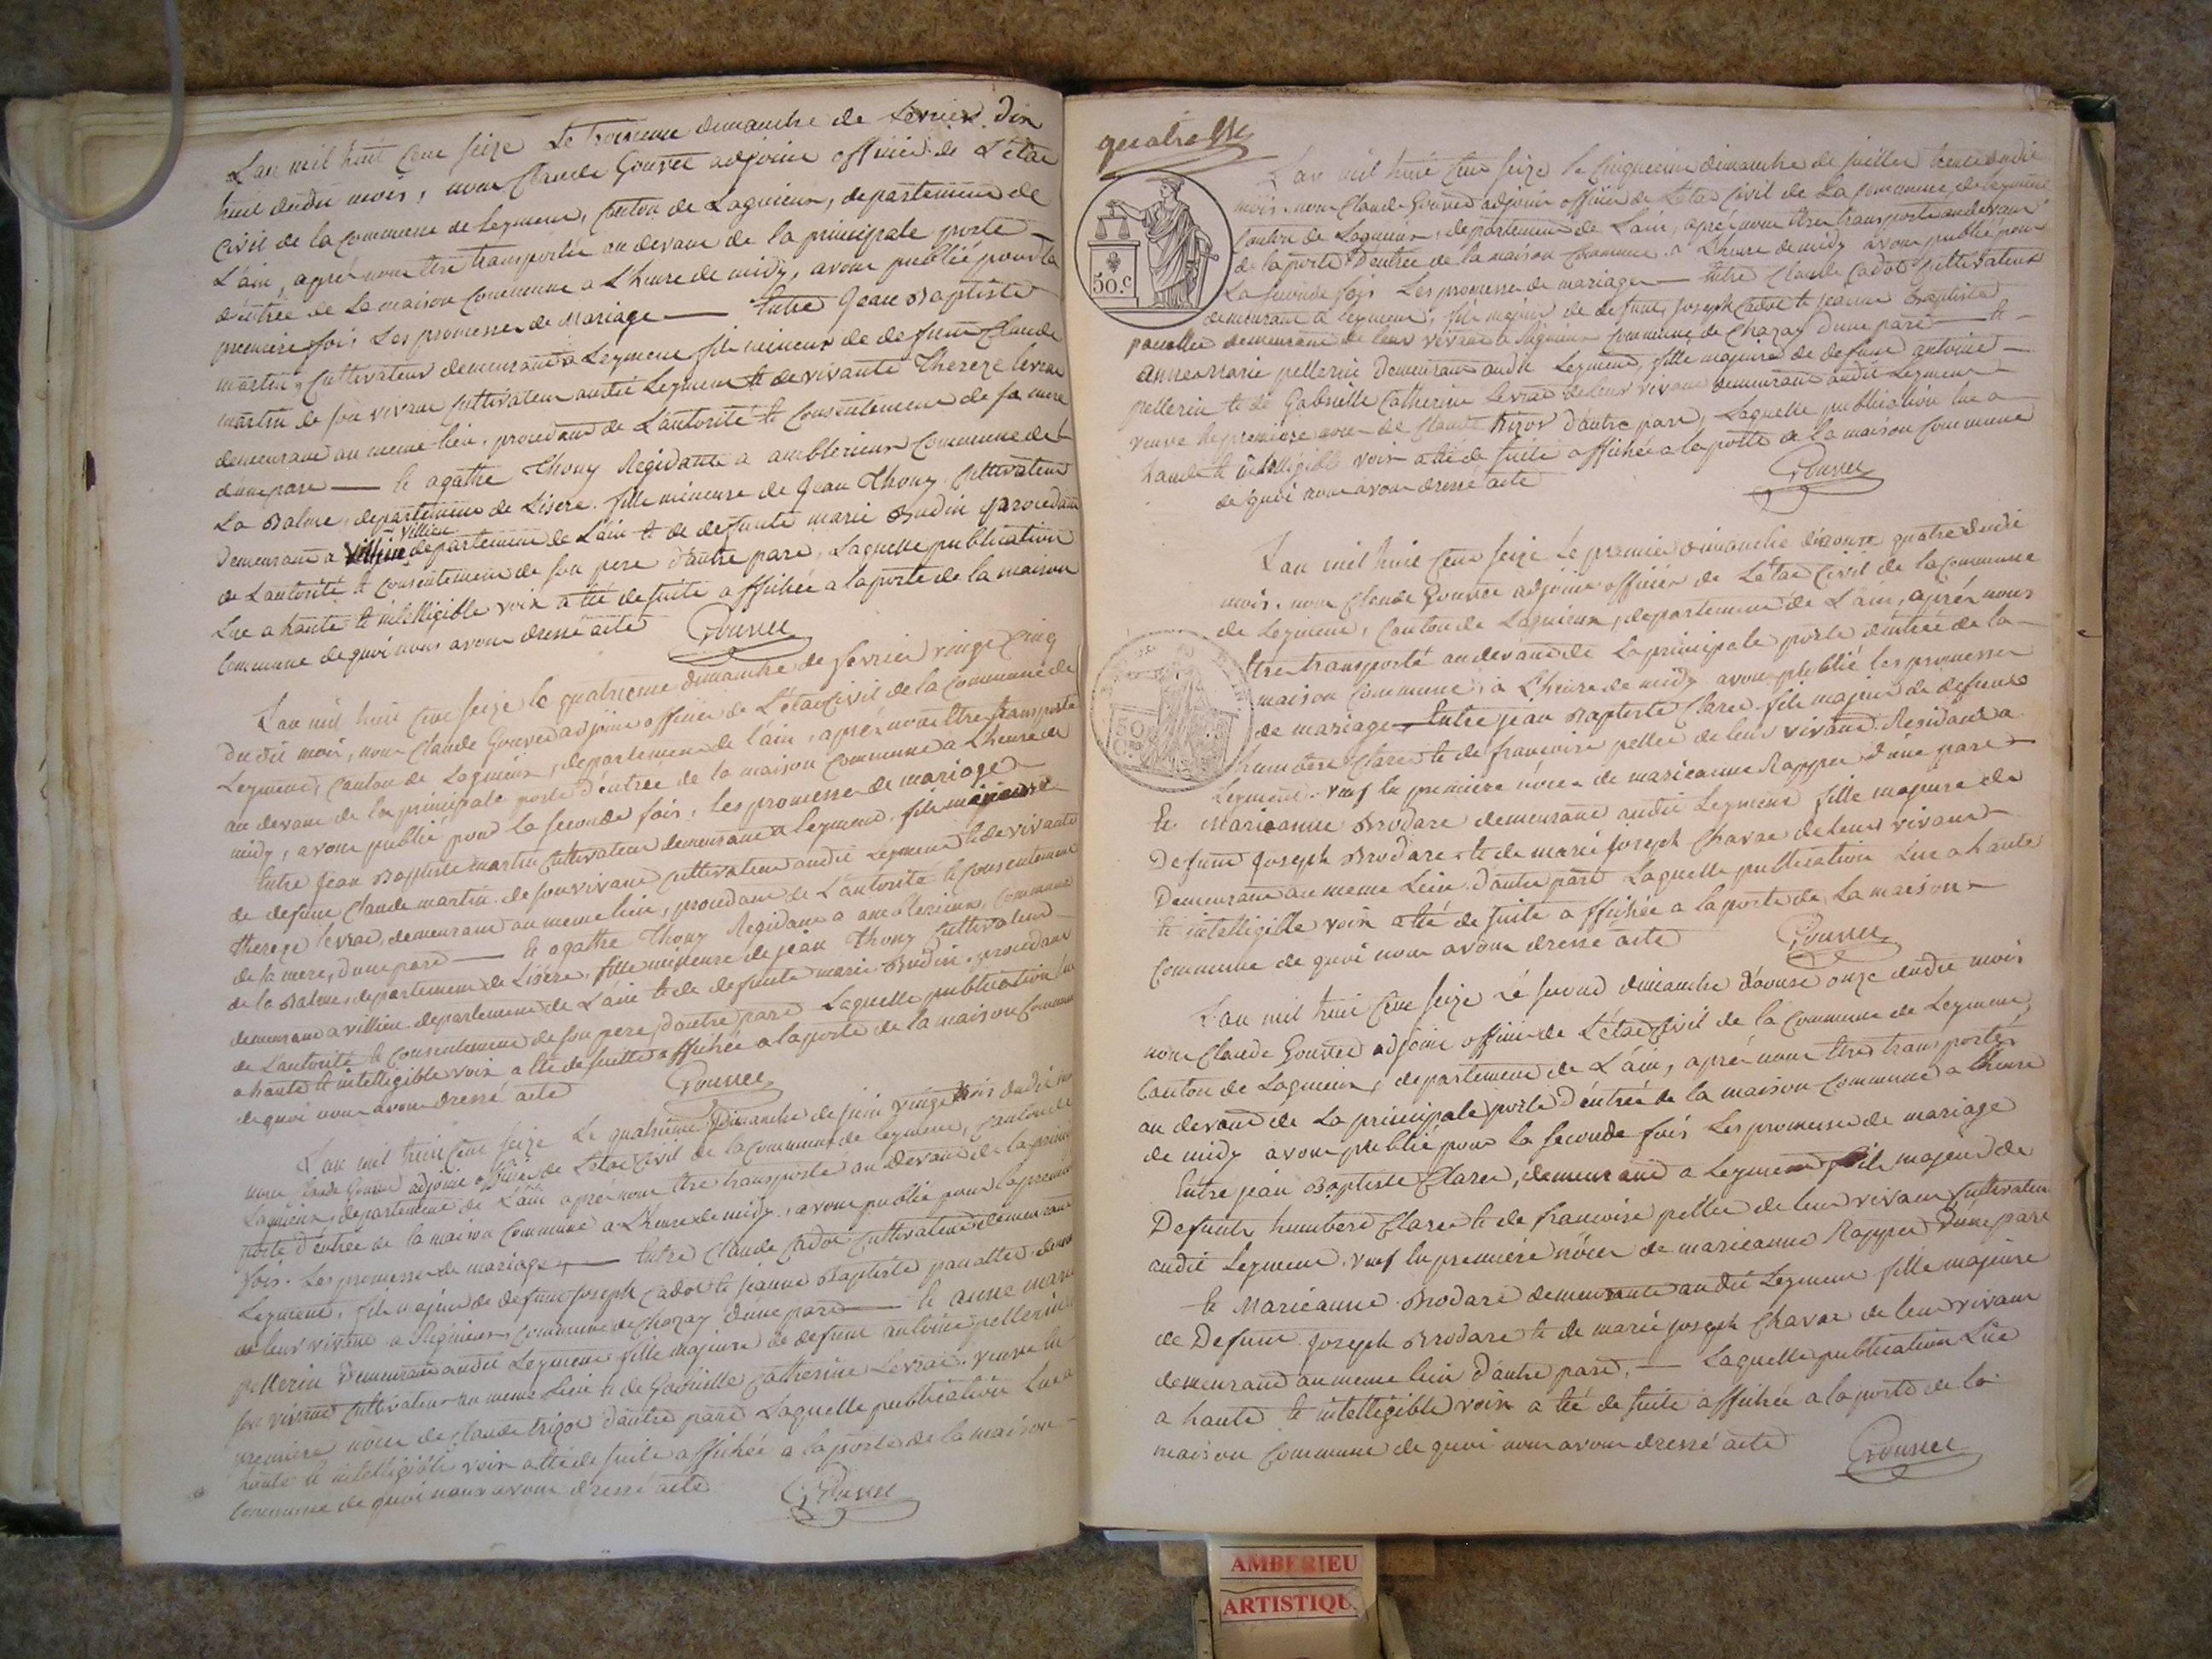 L'an mil huit cent seize Le troisieme dimanche de fevrier dix
huit dudit mois, nous Claude Gouvet adjoint officier de L'etat
Civil de la Commune de Leyment, Canton de Lagnieux, departement de
L'ain, aprés nous être transportés au devant de la principale porte
d'entrée de La maison Commune a L'heure de midy, avons publié pour la
premiere fois Les promesses de Mariage — Entre Jean Baptiste
martin, Cultivateur demeurant a Leyment fils mineur de defunt Claude
martin de son vivant Cultivateur audit Leyment et de vivante Thereze levrat
demeurant au meme lieu, procedant de L'autorité et Consentement de sa mere
d'une part — Et agathe Thony Residante a amblerieux Commune de
La Balme, departement de Lisere, fille mineure de Jean Thony Cultivateur
villieu
Demeurant a departement de L'ain et de defunte marie Budin procedant
de L'autorité et Consentement de son pere d'autre part, Laquelle publication
Lue a haute et intelligible voix a été de suite affichée a la porte de la maison
Commune de quoi nous avons dressé acte Gouvet
L'an mil huit cent seize le quatrieme dimanche de fevrier vingt Cinq
Du dit mois, nous Claude Gouvet adjoint officier de L'etat Civil de la Commune de
Leyment, Canton de Lagnieux, departement de l'ain, aprés nous être transporté
au devant de la principale porte d'entrée de la maison Commune a L'heure de
midy, avons publié pour La seconde fois, Les promesses de mariage
Entre Jean Baptiste martin Cultivateur demeurant a leyment, fils
de defunt Claude martin de son vivant Cultivateur audit Leyment et de vivante
thereze levrat, demeurant au meme lieu, procedant de L'autorité et Consentement
de sa mere, d'une part — Et agathe Thony Residant a amblerieux Commune
de la Balme, departement de Lisere, fille mineure de jean Thony Cultivateur
demeurant a villieu departement de L'ain et de defunte marie Budin, procedant
de L'autorité et Consentement de son pere, d'autre part Laquelle publication lue
a haute et intelligible voix a été de suitte affichée a la porte de la maison Commune
de quoi nous avons dressé acte Gouvet
L'an mil huit cent seize Le quatrieme Dimanche de juin vingt trois dudit mois
nous Claude Gouvet adjoint officier de L'etat Civil de la Commune de Leyment, Canton de
Lagnieux, departement de L'ain aprés nous être transporté au devant de la princip
porte d'entrée de la maison Commune a L'heure de midy, avons publié pour la premiere
fois, Les promesses de mariage, — Entre Claude Cadot Cultivateur demeurant
Leyment, fils majeur de defunt joseph Cadot et jeanne Baptiste panatter
de leur vivant a Rignieux, Commune de Chazay d'une part — Et anne marie
pellerin Demeurant audit Leyment fille majeure de defunt antoine pellerin
son vivant Cultivateur au meme Lieu et de Gabrielle Catherine Levrat, veuve en
premiere noces de Claude trizot d'autre part Laquelle publication Lue a
haute et intelligible voix a été de suite affichée a la porte de la maison
Commune de quoi nous avons dressé acte Gouvet
quatre
L'an mil huit Cent seize le Cinquieme dimanche de juillet dudit
mois, nous Claude Gouvet adjoint officier de L'etat Civil de La Commune de Leyment
Canton de Lagnieux, departement de L'ain, aprés nous être transporté au devant
de la porte d'entrée de la maison Commune a L'heure de midy avons publié pour
La seconde fois Les promesses de mariage — Entre Claude Cadot Cultivateur
demeurant a leyment, fils majeur de defunt joseph Cadot et jeanne Baptiste
demeurant de leur vivant a Rignieux Commune de Chazay d'une part — Et
anne Marie pellerin Demeurant audit Leyment, fille majeure de defunt antoine
pellerin et de Gabrielle Catherine Levrat de leur vivant demeurant audit Leyment
veuve en premiere noces de Claude trizot d'autre part, Laquelle publication lue a
haute et intelligible voix a été de suite affichée a la porte de la maison Commune
de quoi nous avons dressé acte Gouvet
50.c
L'an mil huit Cent seize Le premier dimanche d'aoust quatre dudit
mois, nous Claude Gouvet adjoint officier de L'etat Civil de la Commune
de Leyment, Canton de Lagnieux, departement de L'ain, aprés nous
être transporté au devant de La principale porte d'entrée de la
maison Commune, a L'heure de midy avons publié les promesses
de mariage — Entre jean Baptiste Claret fils majeur de defunt
humbert Claret et de francoise pellet de leur vivant Residant a
Leyment, veuf en premiere noces de marieanne Rappet d'une part
Et Marieanne Brodart demeurant audit Leyment fille majeure de
Defunt joseph Brodart et de marie joseph Chavat de leur vivant
Demeurant au meme Lieu d'autre part Laquelle publication Lue a haute
et intelligible voix a été de suite affichée a la porte de La maison
Commune de quoi nous avons dressé acte Gouvet
50
L'an mil huit Cent seize Le second dimanche d'aoust onze dudit mois
nous Claude Gouvet adjoint officier de L'etat Civil de la Commune de Leyment,
Canton de Lagnieux, departement de L'ain, aprés nous être transportés
au devant de La principale porte d'entrée de la maison Commune a Lheure
de midy avons publié pour la seconde fois Les promesses de mariage
Entre jean Baptiste Claret, demeurant a Leyment fils majeur de
Defunts humbert Claret et de francoise pellet de leur vivant Cultivateur
audit Leyment, veuf en premiere noces de marieanne Rappet d'une part
Et Marieanne Brodart demeurante audit Leyment fille majeure
de Defunt joseph Brodart et de marie joseph Chavat de leur vivant
demeurant au meme lieu d'autre part, — Laquelle publication Lue
a haute et intelligible voix a été de suite affichée a la porte de la
maison Commune de quoi nous avons dressé acte Gouvet
AMBERIEU
ARTISTIQU